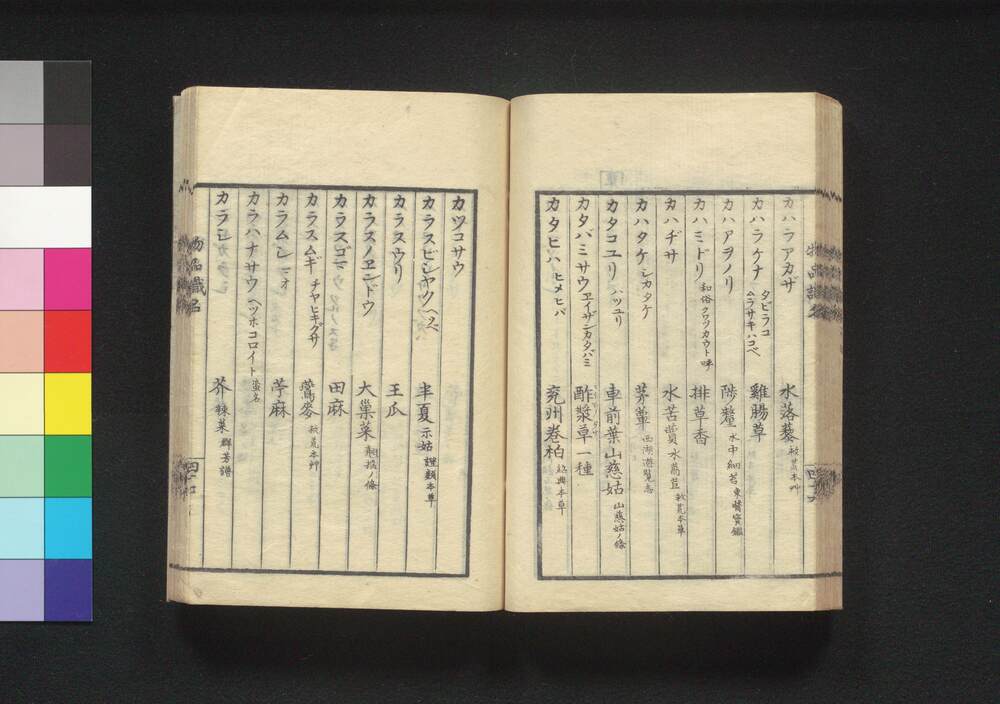 カハラアカザ 水落藜 救荒本艸
カハラケナ タビラコ ムラサキハコベ 雞腸草
カハアヲノリ 陟釐 水中細苔 東醫寳鑑
カハミドリ 和俗クワツカウト呼 排草香
カハヂサ 水苦蕒 水萵苣 救荒本草
カハタケ シカタケ 茅蕈 西湖遊覧志
カタコユリ ハツユリ 車前葉山慈姑 山慈姑ノ條
カタバミサウ ヱイザンカタバミ 酢漿草一種
カタヒハ ヒメヒバ 兖州巻柏 紹興本草
カツコサウ
カラスビシヤク ヘソベ 半夏 示姑 證類本草
カラスウリ 王瓜
カラスノヱンドウ 大巣菜 ノ條
カラスゴマ 田麻
カラスムギ チヤヒキグサ 䕮麥 救荒本艸
カラムシ マオ 苧麻
カラハナサウ ヘツホコロイト 蛮名
カラシ 芥 辣菜 群芳譜
物品識名